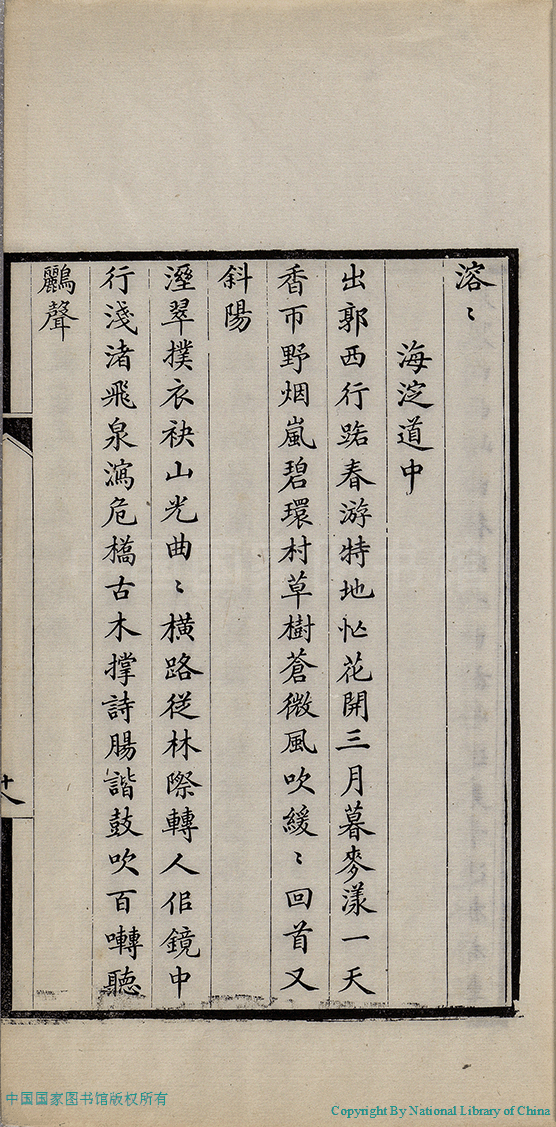 溶〻
海淀道中
出郭西行踞春游特地忙花開三月暮麥漾一天
香帀野烟嵐碧環村草樹蒼微風吹緩〻回首又
斜陽
溼翠撲衣袂山光曲〻橫路從林際轉人侶鏡中
行淺渚飛泉瀉危橋古木撑詩腸諧鼓吹百囀聽
鸝聲
十八
中国国家图书馆版权所有
Copyright By National Library of China